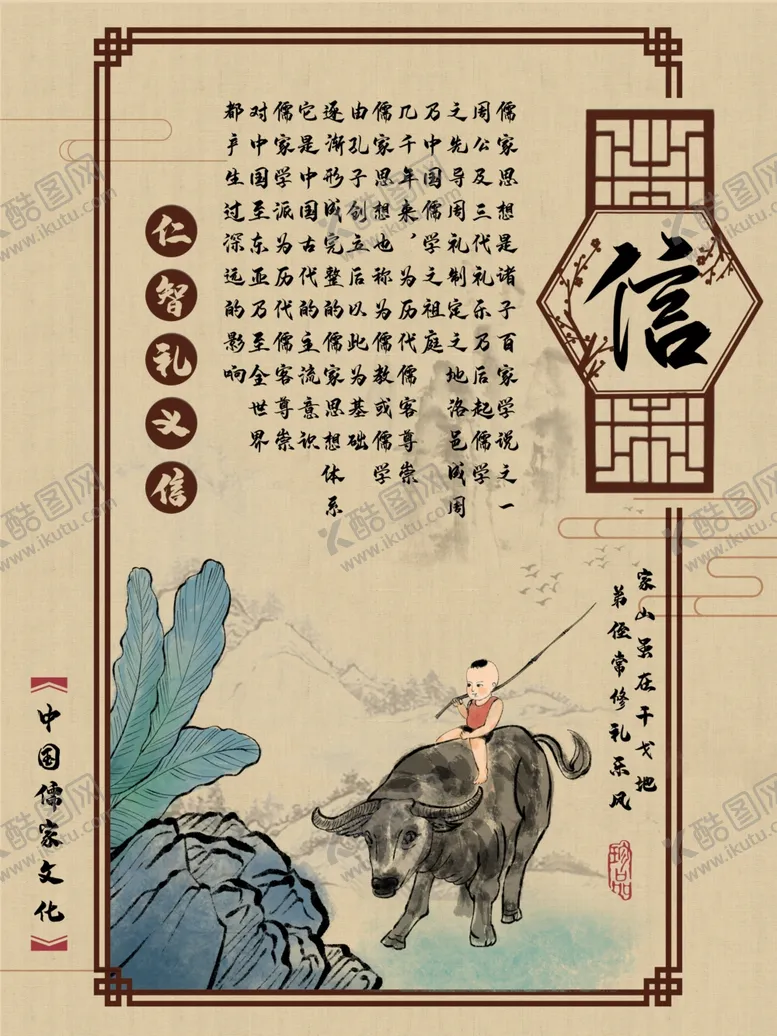 信
儒家思想是诸子百家学说之一
周公及三代礼乐乃后起儒学
之先导周礼制定之地洛邑成周
乃中国儒学之祖庭
几千年来，为历代儒客尊崇
儒家思想也称为儒教或儒学
由孔子创立后以此为基础
逐渐形成完整的儒家思想体系
它是中国古代的主流意识
儒家学派为历代儒客尊崇
对中国至东亚乃至全世界
都产生过深远的影响
仁
智
礼
义
信
家山虽在干戈地
弟侄常修礼乐风
珍品
《中国儒家文化》
酷图网
www.ikutu.com